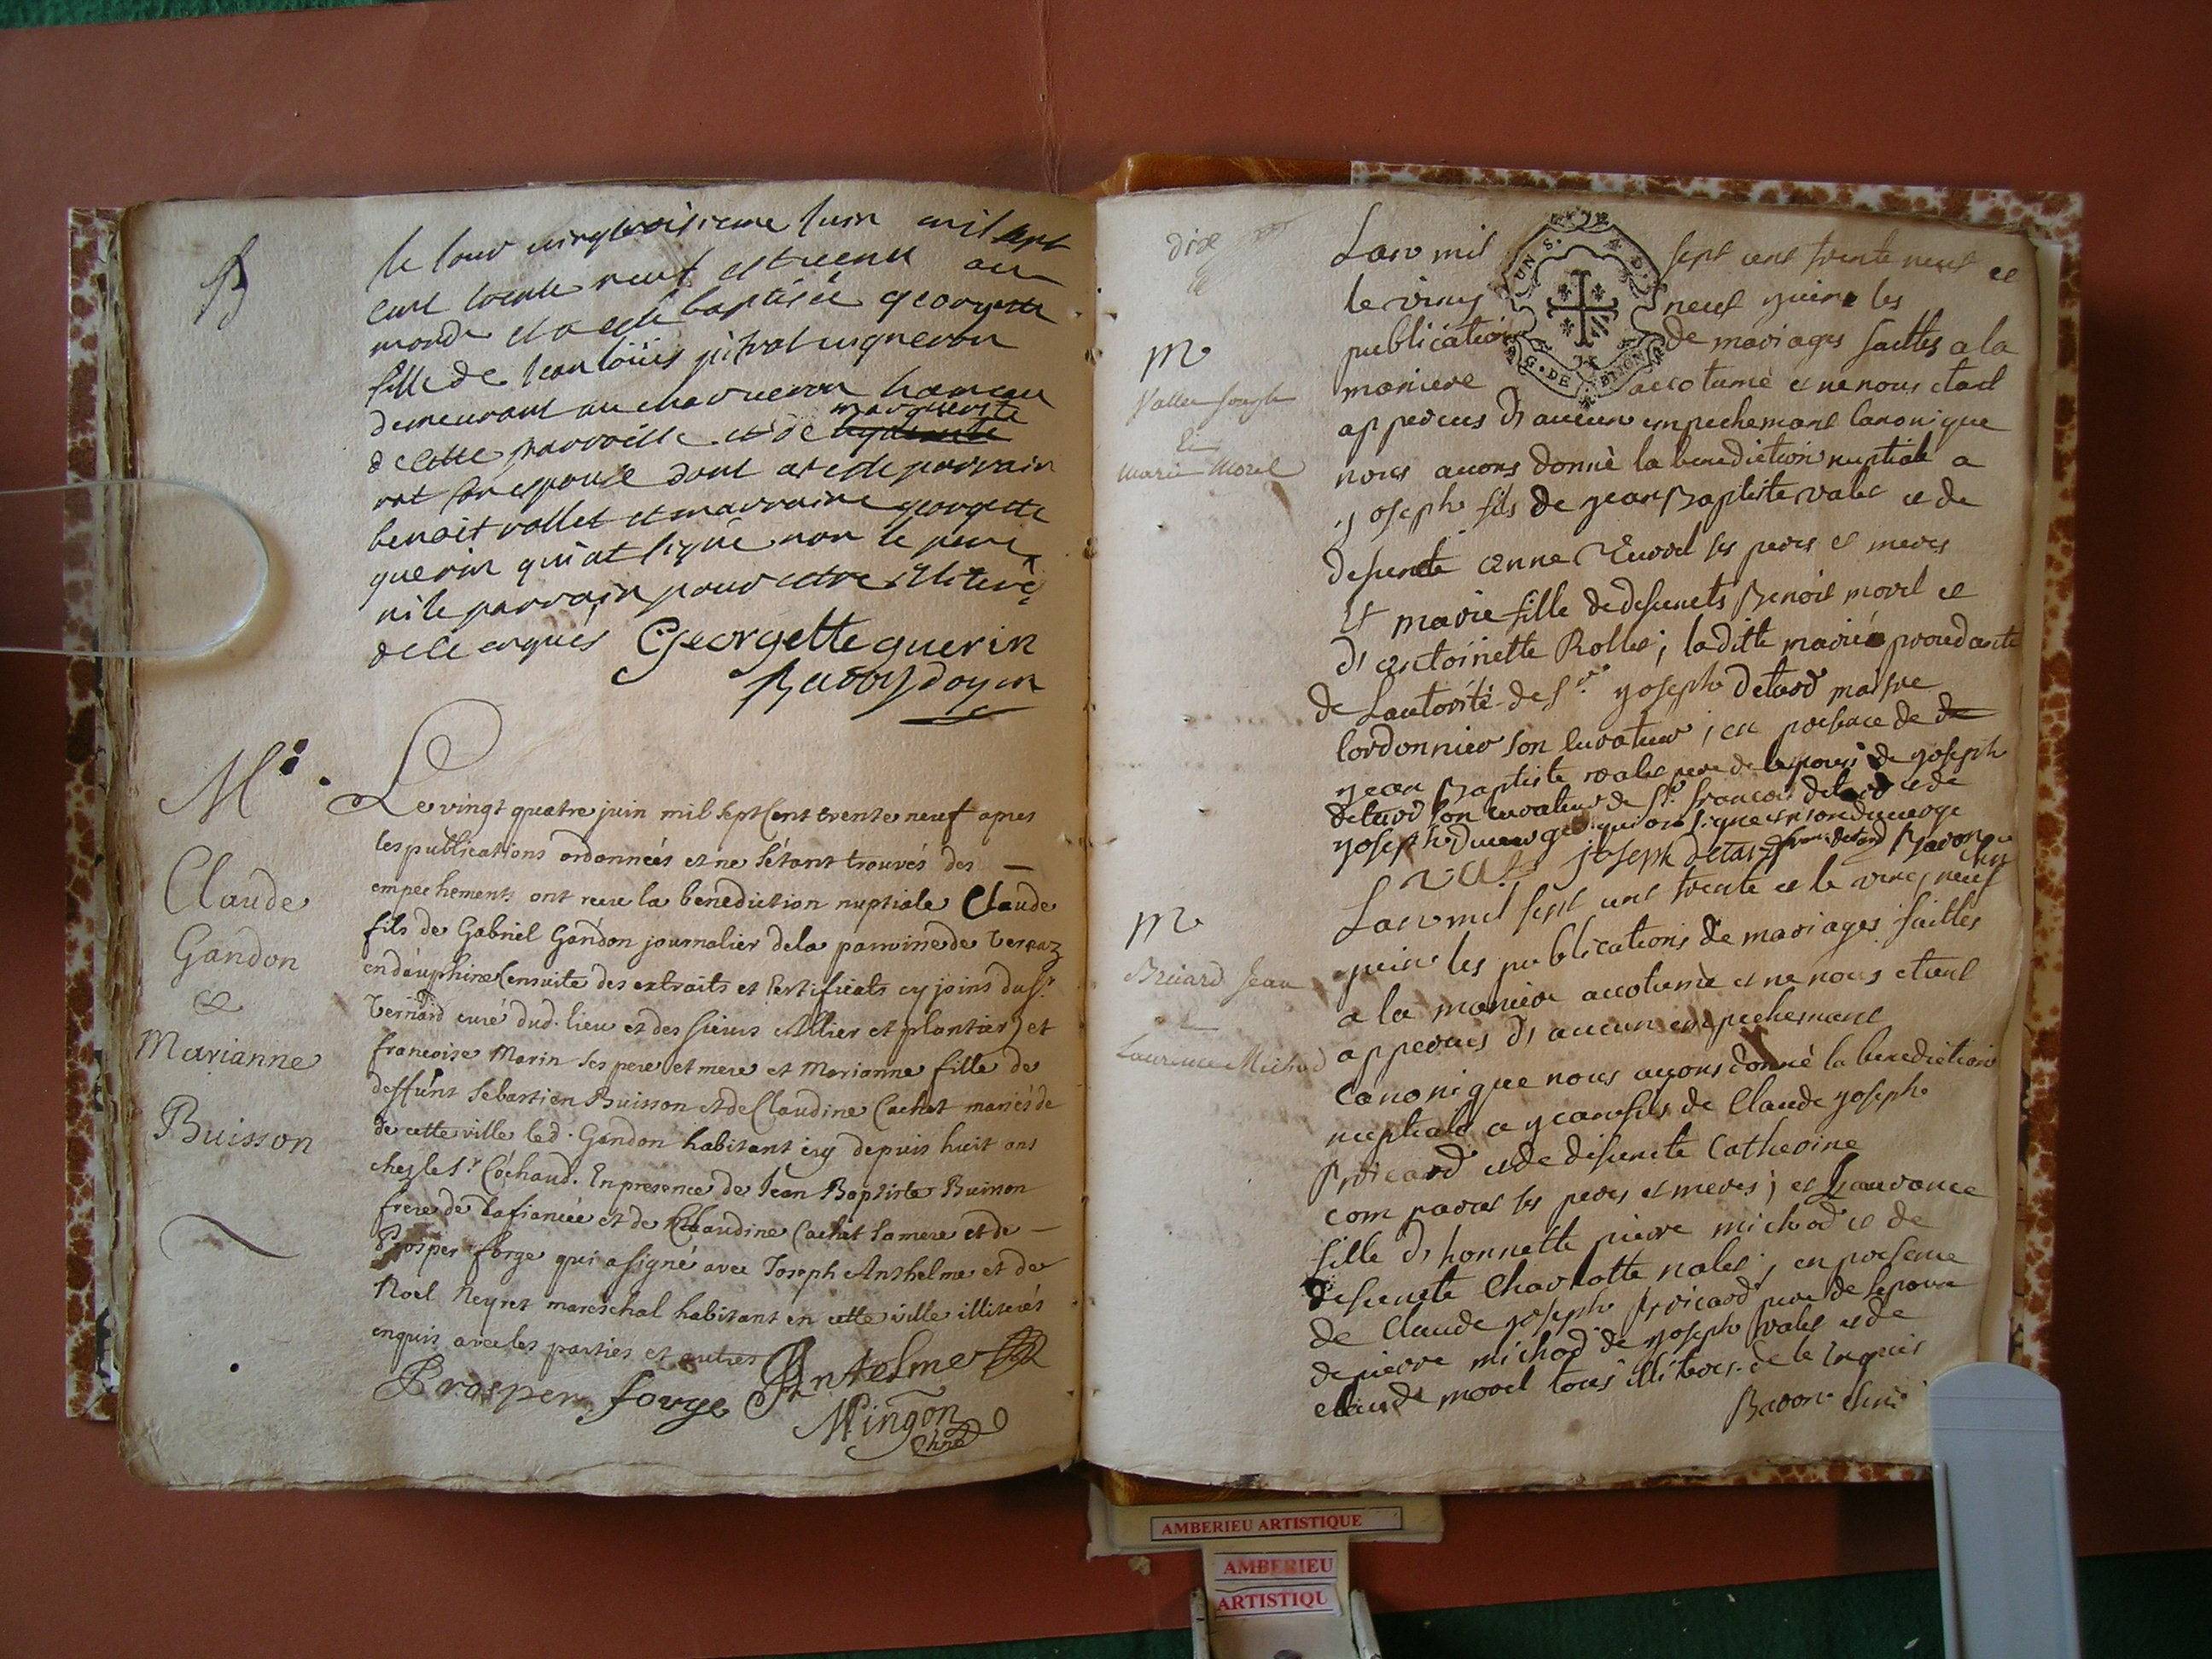 B
le jour vingtroisieme juin mil sept
cent trente neuf est venu au
monde et a esté baptisée georgette
fille de jean loüis pitrat vigneron
demeurant au chaveron hameau
marguerite
de cette parroisse et de
son espouse dont at esté parrain
benoit vallet et marraine georgette
guerin qui at signé non le pere
ni le parrain pour estre illiteré
de ce enquis Georgette guerin
M.
Claude
Gandon
&
Marianne
Buisson
Le vingt quatre juin mil sept cent trente neuf apres
les publications ordonnées et ne s'étant trouvés des
empechements ont receu la benediction nuptiale Claude
fils de Gabriel Gandon journalier de la paroisse de
en dauphiné (ensuite des extraits et certificats cy joins du Sr
curé dud. lieu et des sieurs et plantier) et
francoise Marin ses pere et mere et Marianne fille de
deffunt Sebastien Buisson et de Claudine Cachet mariés de
de cette ville led. Gandon habitant icy depuis huit ans
chez le Sr Cochaud. En presence de Jean Baptiste Buisson
frere de la fiancée et de Claudine Cachet sa mere et de
Prosper forge qui a signé avec Joseph Anthelme et de
Noel Neyret mareschal habitant en cette ville illiterés
enquis avec les parties et autres
Prosper forge Antelme
Mingon
M
Vallet Joseph
Et
Marie Morel
Lan mil sept cent trente neuf et
le vint neuf juin les
publications de mariages faittes a la
maniere accotumé et ne nous etant
apperçus d'aucun empechemant canonique
nous avons donné la benediction nuptiale a
joseph fils de jean Baptiste valet et de
defuncte anne ses peres et meres
Et marie fille de defuncts Benoit morel et
d'antoinette Rollet; la ditte mariée procedante
de Lautorité de Sr joseph detard maitre
cordonnier son curateur; en presence de de
jean Baptiste valet pere de lepoux de joseph
detard son curateur de Sr francois detard et de
joseph
joseph detard Bavoz
M
Bricard Jean
et
Laurence Michod
Lan mil sept cent trente et le vint neuf
juin les publications de mariages faittes
a la maniere accotumé et ne nous etant
apperçus d'aucun empechemant
canonique nous avons donné la benediction
nuptiale a jean fils de Claude joseph
Bricard et de defuncte Catherine
ses peres et meres; et Laurance
fille d'honnette pierre michod et de
defuncte Charlotte nalet; en presence
de Claude joseph Bricard pere de lepoux
de pierre michod de joseph valet et de
claude morel tous illiteres de ce enquis
AMBERIEU ARTISTIQUE
AMBERIEU
ARTISTIQU